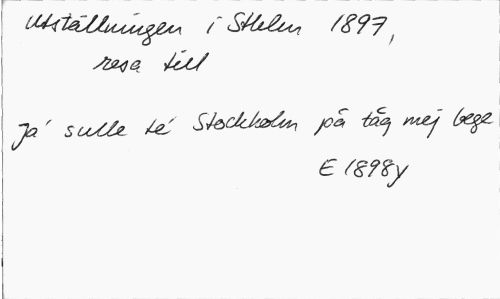 Utställningen i Sthlm 1897,
resa till
Ja' sulle te' Stockholm på tåg mej bege
E 1898y